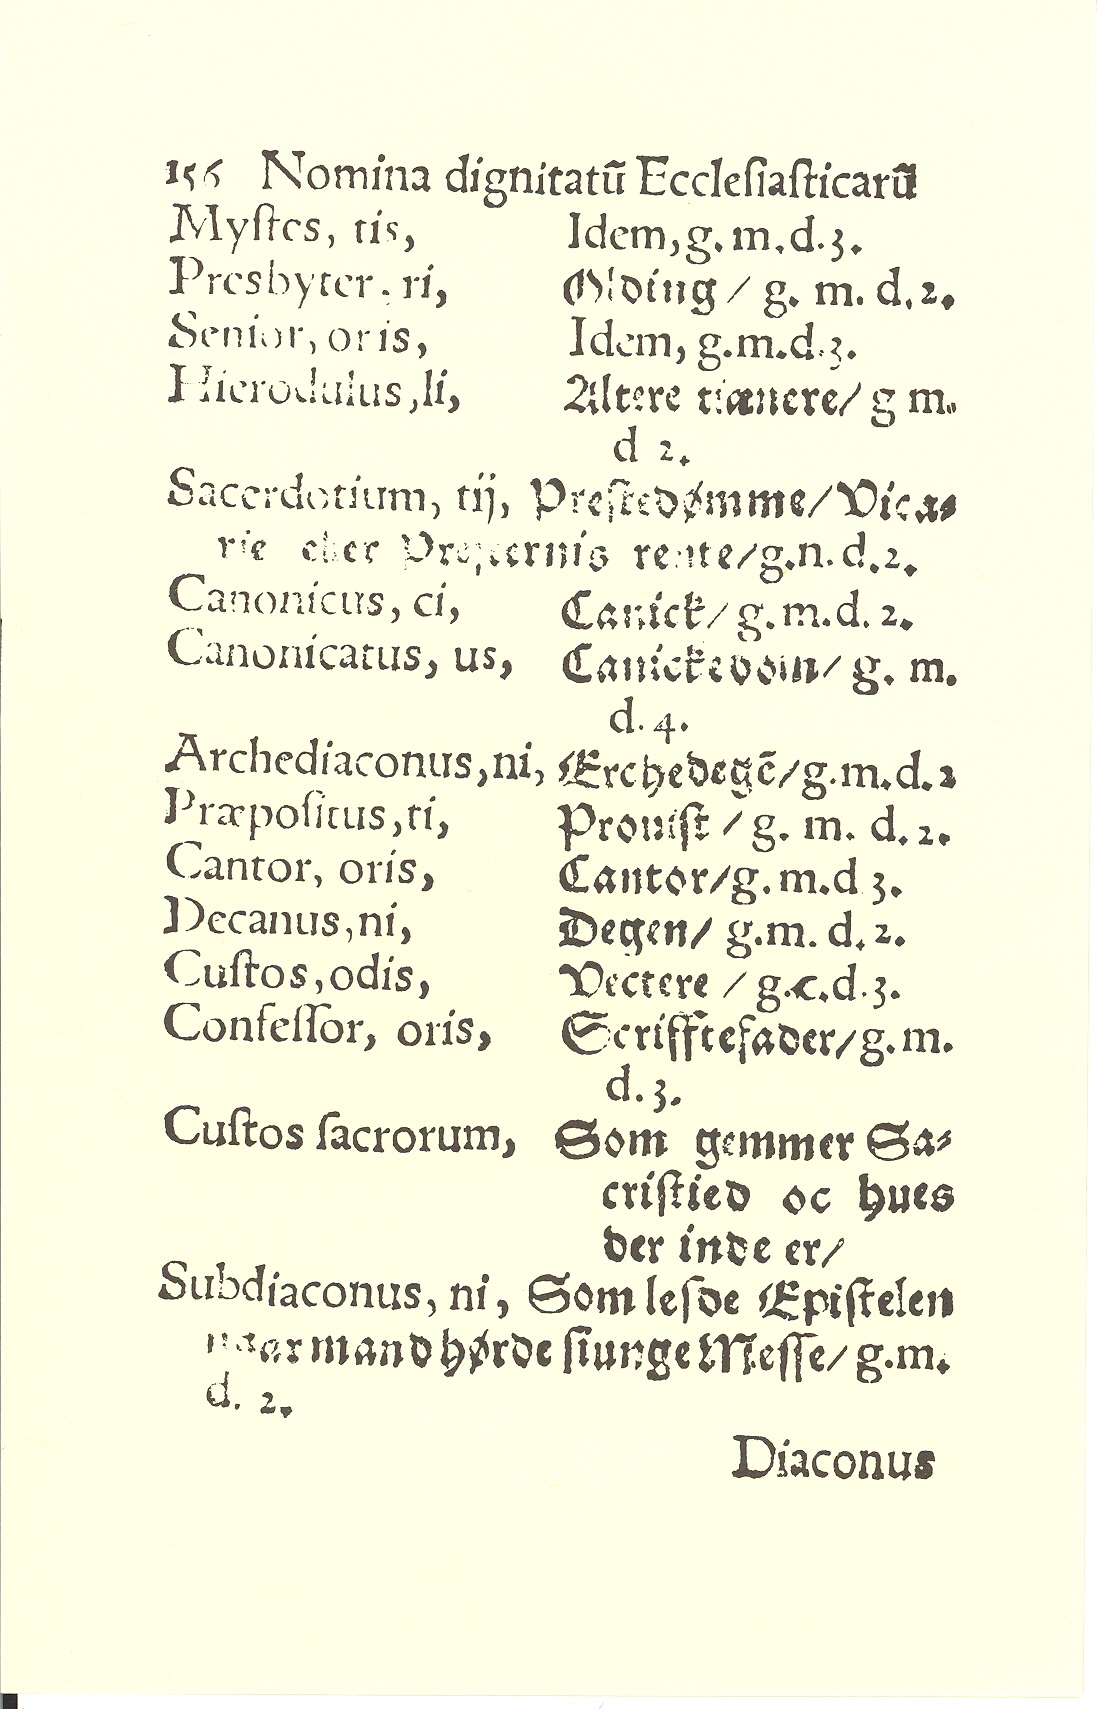 156 Nomina dignitatũ Eccleſiaſticarũ
Myſtes, tis, Idem, g. m. d. 3.
Presbyter, ri, Olding / g. m. d. 2.
Senior, oris, Idem, g. m. d. 3.
Hierodulus, li, Altere tiænere / g m.
d 2.
Sacerdotium, tij, Preſtedømme / Vica⸗
rie eller rente / g. n. d. 2.
Canonicus, ci, Canick / g. m. d. 2.
Canonicatus, us, Canickedom / g. m.
d. 4.
Archediaconus, ni, Erchedegẽ / g. m. d. 2
Præpoſitus, ti, Prouiſt / g. m. d. 2.
Cantor, oris, Cantor / g. m. d 3.
Decanus, ni, Degen / g. m. d. 2.
Cuſtos, odis, Vectere / g. c. d. 3.
Confeſſor, oris, Scrifftefader / g. m.
d. 3.
Cuſtos ſacrorum, Som gemmer Sa⸗
criſtied oc hues
der inde er /
Subdiaconus, ni, Som leſde Epiſtelen
naar mand hørde ſiunge Meſſe / g. m.
d. 2.
Diaconus